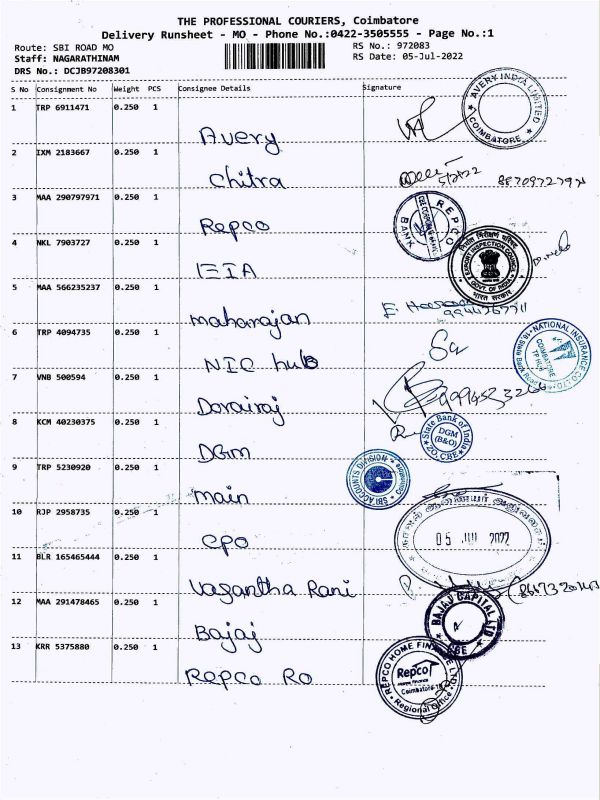 THE PROFESSIONAL COURIERS, Coimbatore
Delivery Runsheet - MO - Phone No.:0422-3505555 - Page No.:1
Route: SBI ROAD MO
RS No.: 972083
Staff: NAGARATHINAM
RS Date: 05-Jul-2022
DRS No.: DCJB97208301
S No Consignment No Weight PCS Consignee Details Signature
1 TRP 6911471 0.250 1
Avery
AVERY INDIA LIMITED
COIMBATORE
2 IXM 2183667 0.250 1
Chitra
5/7/22
3 MAA 290797971 0.250 1
Repco
REPCO BANK
4 NKL 7903727 0.250 1
EIA
EXPORT INSPECTION COUNCIL
GOVT. OF INDIA
भारत सरकार
5 MAA 566235237 0.250 1
maharajan
6 TRP 4094735 0.250 1
NIC hub
NATIONAL INSURANCE CO LTD
COIMBATORE
7 VNB 500594 0.250 1
Dorairaj
8 KCM 40230375 0.250 1
DGM
State Bank of India
DGM
(B&O)
ZO, CBE
9 TRP 5230920 0.250 1
main
SBI ACCOUNTS DIVISION
10 RJP 2958735 0.250 1
CPO
05 JUL 2022
11 BLR 165465444 0.250 1
Vasantha Rani
12 MAA 291478465 0.250 1
Bajaj
BAJAJ CAPITAL LTD
CBE
13 KRR 5375880 0.250 1
Repco RO
REPCO HOME FINANCE LTD.
Repco
Coimbatore
Regional Office